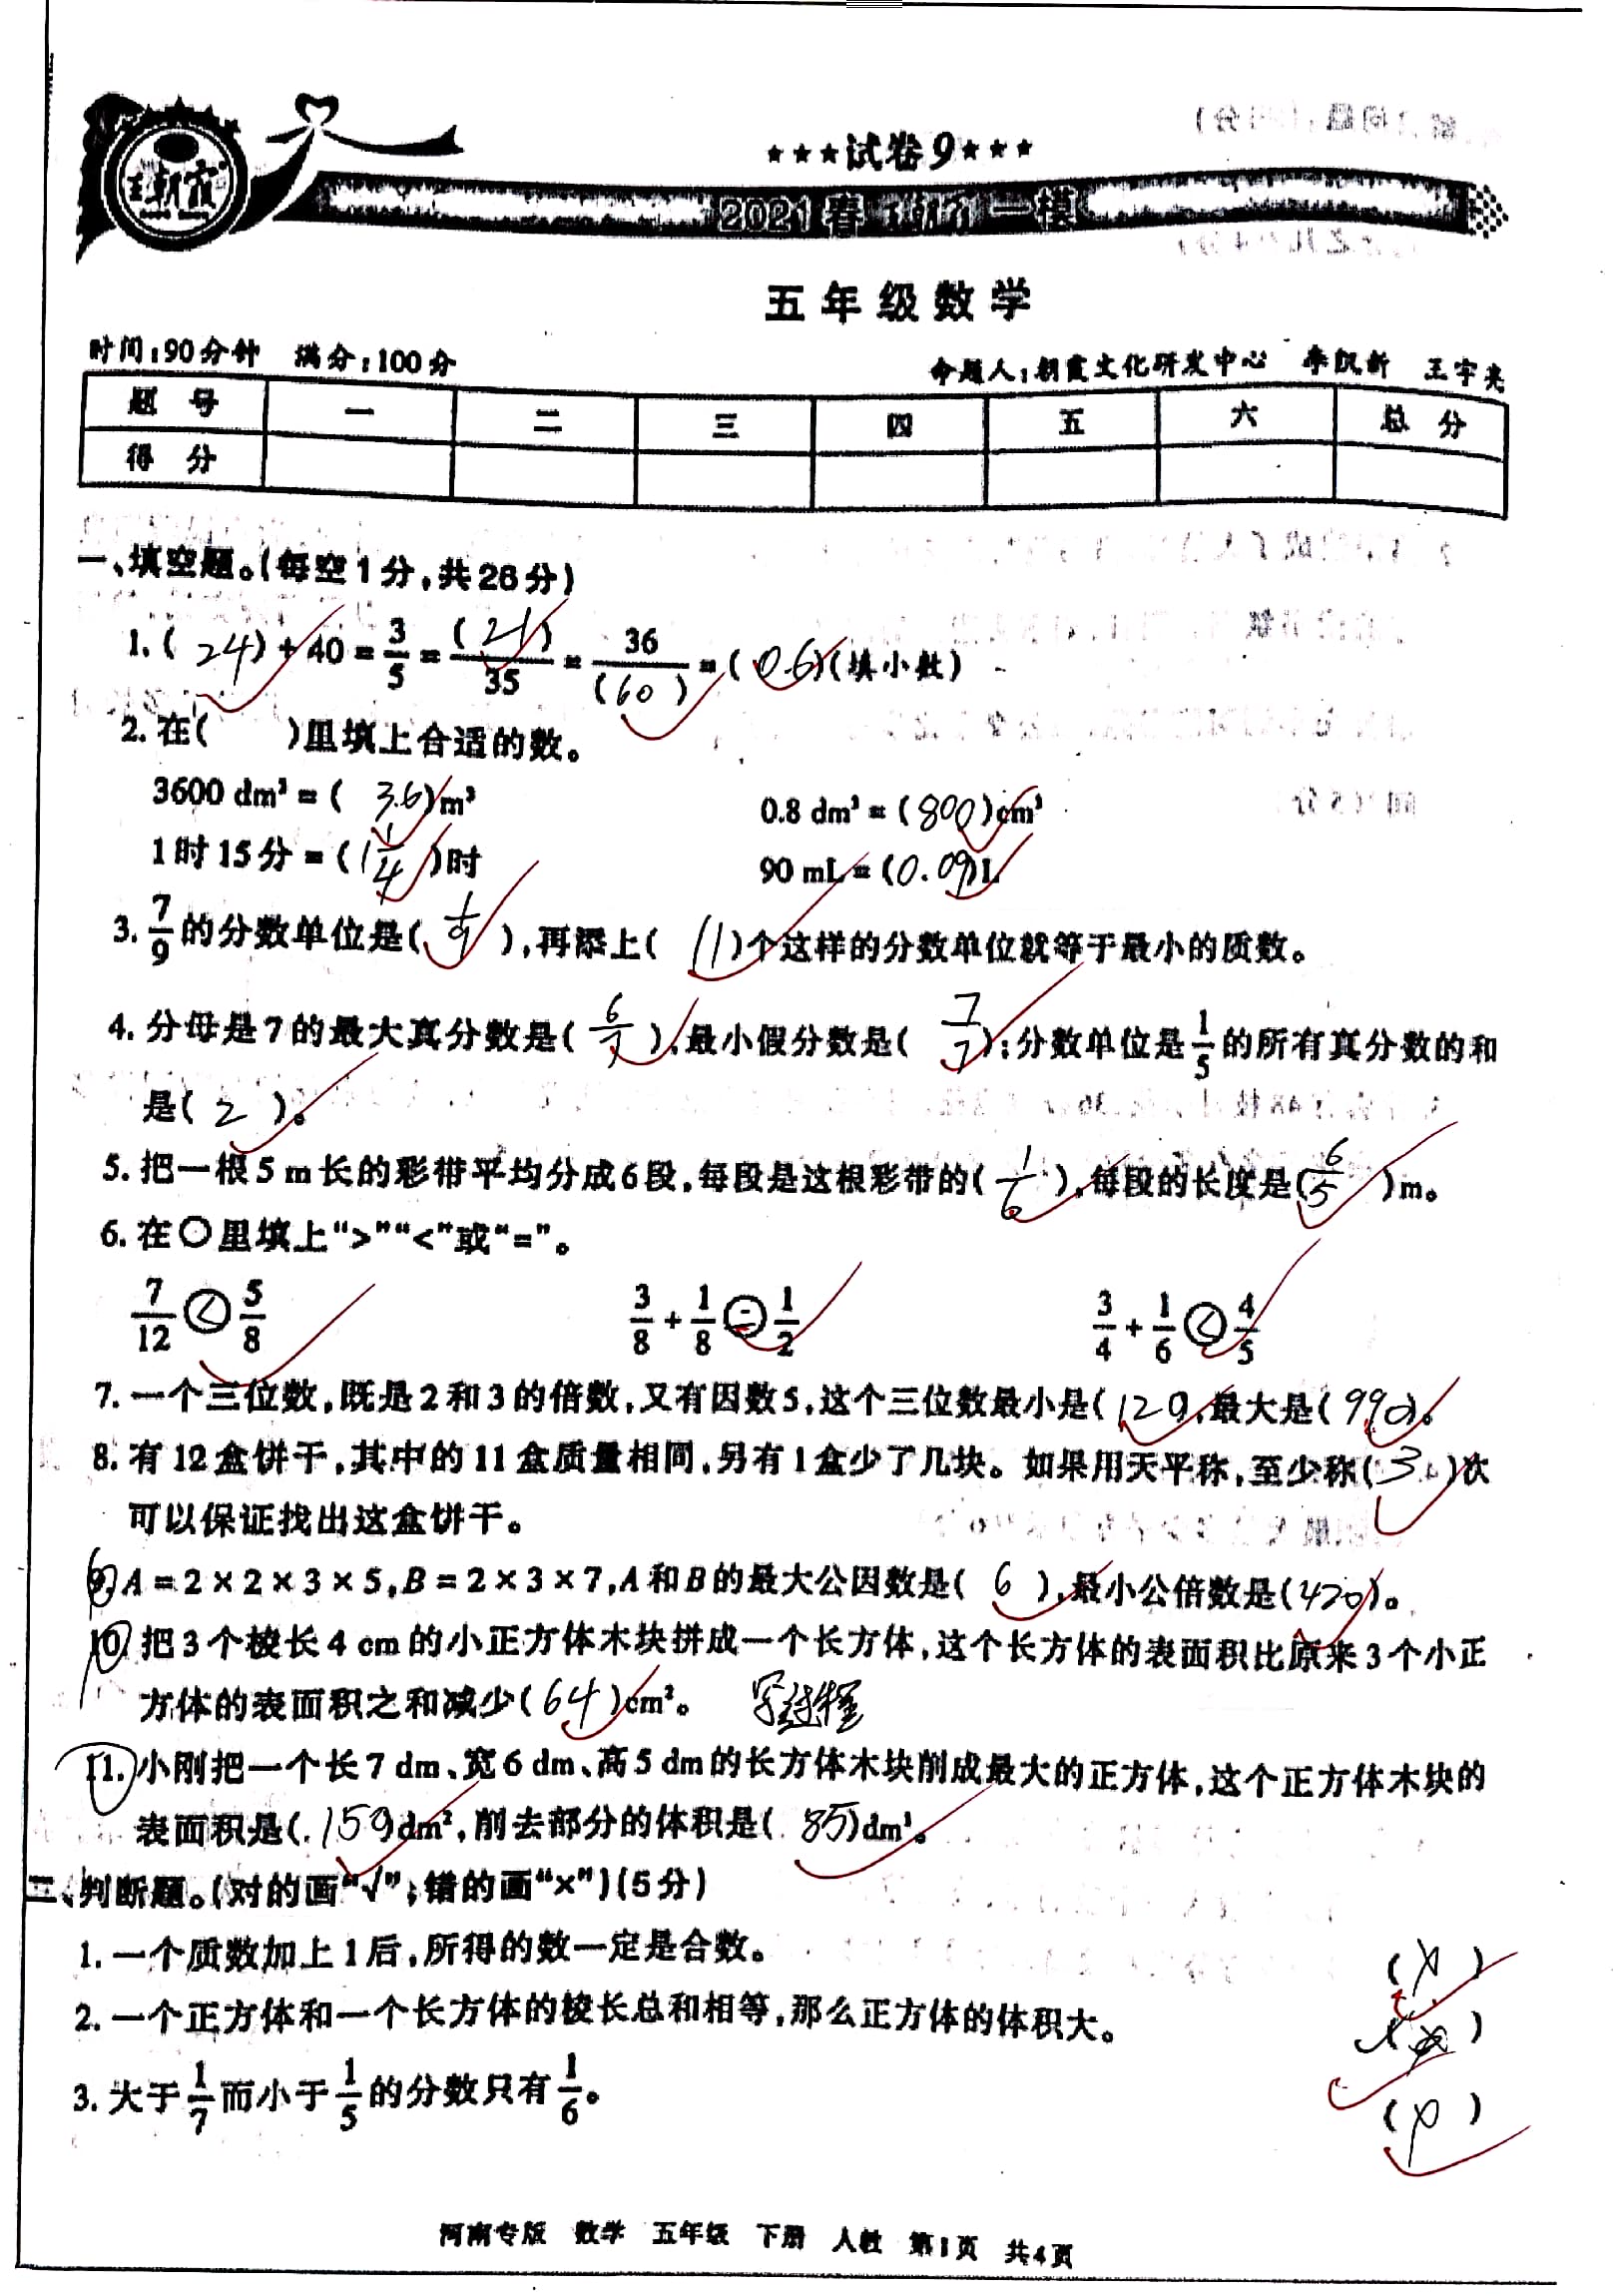 王朝霞
★★★试卷9★★★
2021春 一模
五年级数学
时间:90分钟 满分:100分
命题人:朝霞文化研发中心 李 新 王宇亮
题 号 一 二 三 四 五 六 总 分
得 分
一、填空题。(每空1分,共26分)
1. ( 24 ) ÷ 40 = 3/5 = ( 21 )/35 = 36/( 60 ) = ( 0.6 )(填小数)
2. 在( )里填上合适的数。
3600 dm³ = ( 3.6 )m³ 0.8 dm³ = ( 800 )cm³
1时15分 = ( 1 1/4 )时 90 mL = ( 0.09 )L
3. 7/9的分数单位是( 1/9 ),再添上( 11 )个这样的分数单位就等于最小的质数。
4. 分母是7的最大真分数是( 6/7 ),最小假分数是( 7/7 );分数单位是1/5的所有真分数的和
是( 2 )。
5. 把一根5 m长的彩带平均分成6段,每段是这根彩带的( 1/6 ),每段的长度是( 6/5 )m。
6. 在○里填上“>”“<”或“=”。
7/12 < 5/8 3/8 + 1/8 = 1/2 3/4 + 1/6 < 4/5
7. 一个三位数,既是2和3的倍数,又有因数5,这个三位数最小是( 120 ),最大是( 990 )。
8. 有12盒饼干,其中的11盒质量相同,另有1盒少了几块。如果用天平称,至少称( 3 )次
可以保证找出这盒饼干。
9. A = 2 × 2 × 3 × 5, B = 2 × 3 × 7, A和B的最大公因数是( 6 ),最小公倍数是( 420 )。
10. 把3个棱长4 cm的小正方体木块拼成一个长方体,这个长方体的表面积比原来3个小正
方体的表面积之和减少( 64 )cm²。 写过程
11. 小刚把一个长7 dm、宽6 dm、高5 dm的长方体木块削成最大的正方体,这个正方体木块的
表面积是( 150 )dm²,削去部分的体积是( 85 )dm³。
二、判断题。(对的画“√”,错的画“×”)(5分)
1. 一个质数加上1后,所得的数一定是合数。 ( × )
2. 一个正方体和一个长方体的棱长总和相等,那么正方体的体积大。 ( )
3. 大于1/7而小于1/5的分数只有1/6。 ( × )
河南专版 数学 五年级 下册 人教 第1页 共4页